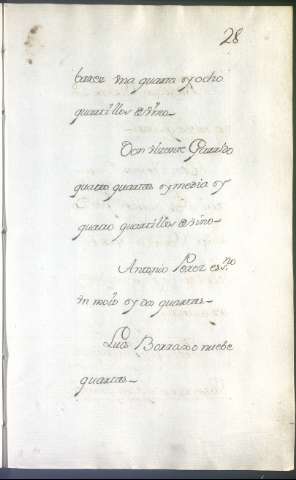 28
una quarta y ocho
quartillos de vino-
Don Vicente
quatro quartas y media y
quatro quartillos de vino-
Antonio Perez es.no
un molo y dos quartas-
Luis Borrajo nuebe
quartas-